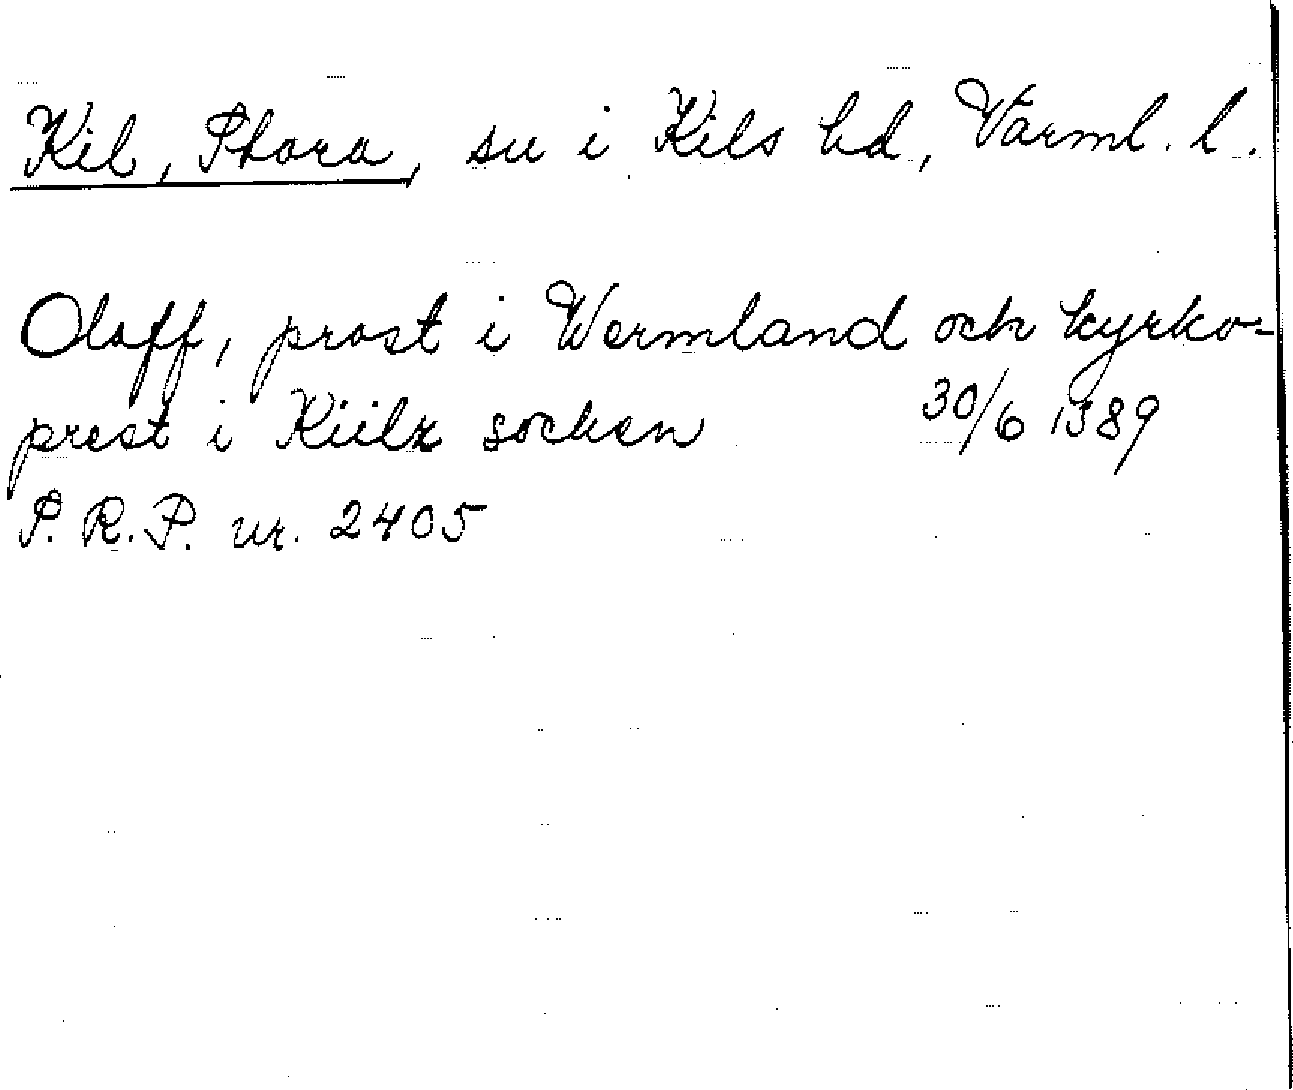 Kil, Stora, sn i Kils hd, Värml. l.
Oloff, prost i Wermland och kyrko-
prest i Kiilz socken 30/6 1389
S. R. P. nr. 2405